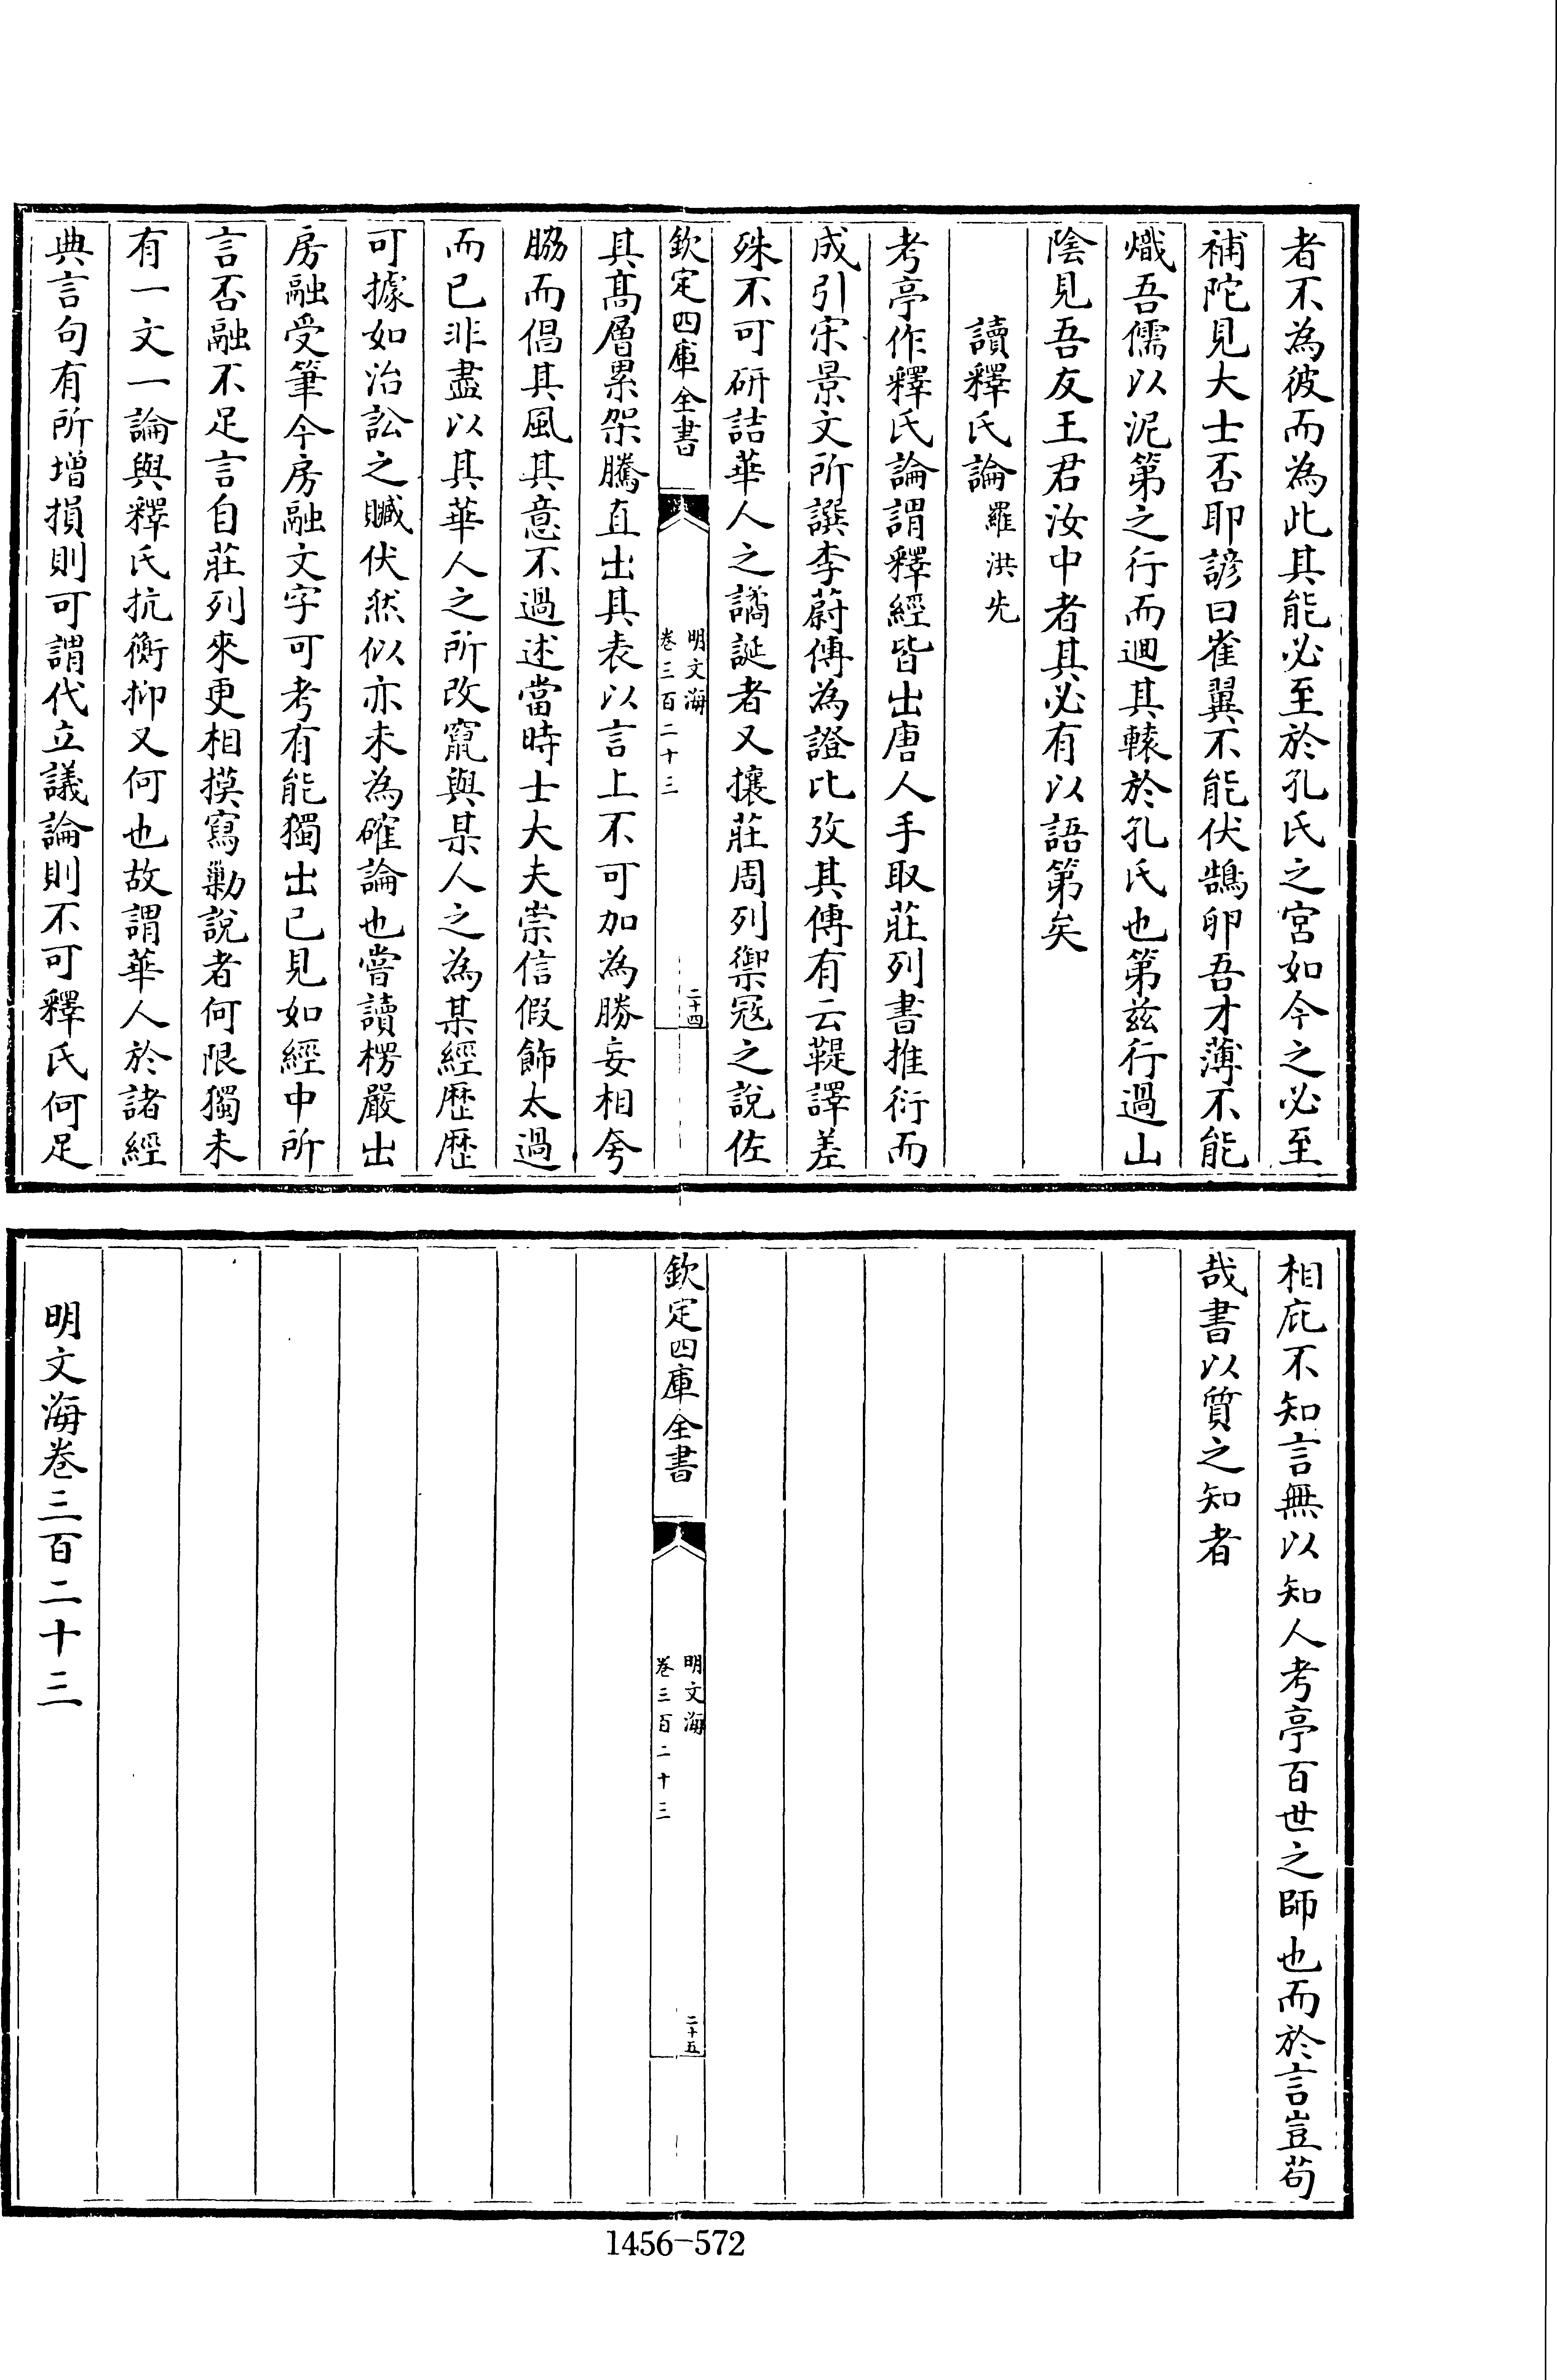 者不為彼而為此其能必至於孔氏之宮如今之必至
補陀見大士否耶諺曰雀翼不能伏鵠卵吾才薄不能
熾吾儒以泥第之行而迴其轅於孔氏也第兹行過山
陰見吾友王君汝中者其必有以語第矣
讀釋氏論羅洪先
考亭作釋氏論謂釋經皆出唐人手取莊列書推衍而
成引宋景文所譔李蔚傳為證比攷其傳有云鞮譯差
殊不可研詰華人之譎誕者又攘莊周列禦冦之說佐
欽定四庫全書
明文海
卷三百二十三
二十四
其高層累架騰直出其表以言上不可加為勝妄相夸
脇而倡其風其意不過述當時士大夫崇信假飾太過
而已非盡以其華人之所改竄與某人之為某經歷歷
可據如治訟之贓伏然似亦未為確論也嘗讀楞嚴出
房融受筆今房融文字可考有能獨出已見如經中所
言否融不足言自莊列來更相摸寫勦說者何限獨未
有一文一論與釋氏抗衡抑又何也故謂華人於諸經
典言句有所增損則可謂代立議論則不可釋氏何足
相庇不知言無以知人考亭百世之師也而於言豈苟
哉書以質之知者
欽定四庫全書
明文海
卷三百二十三
二十五
明文海卷三百二十三
1456-572